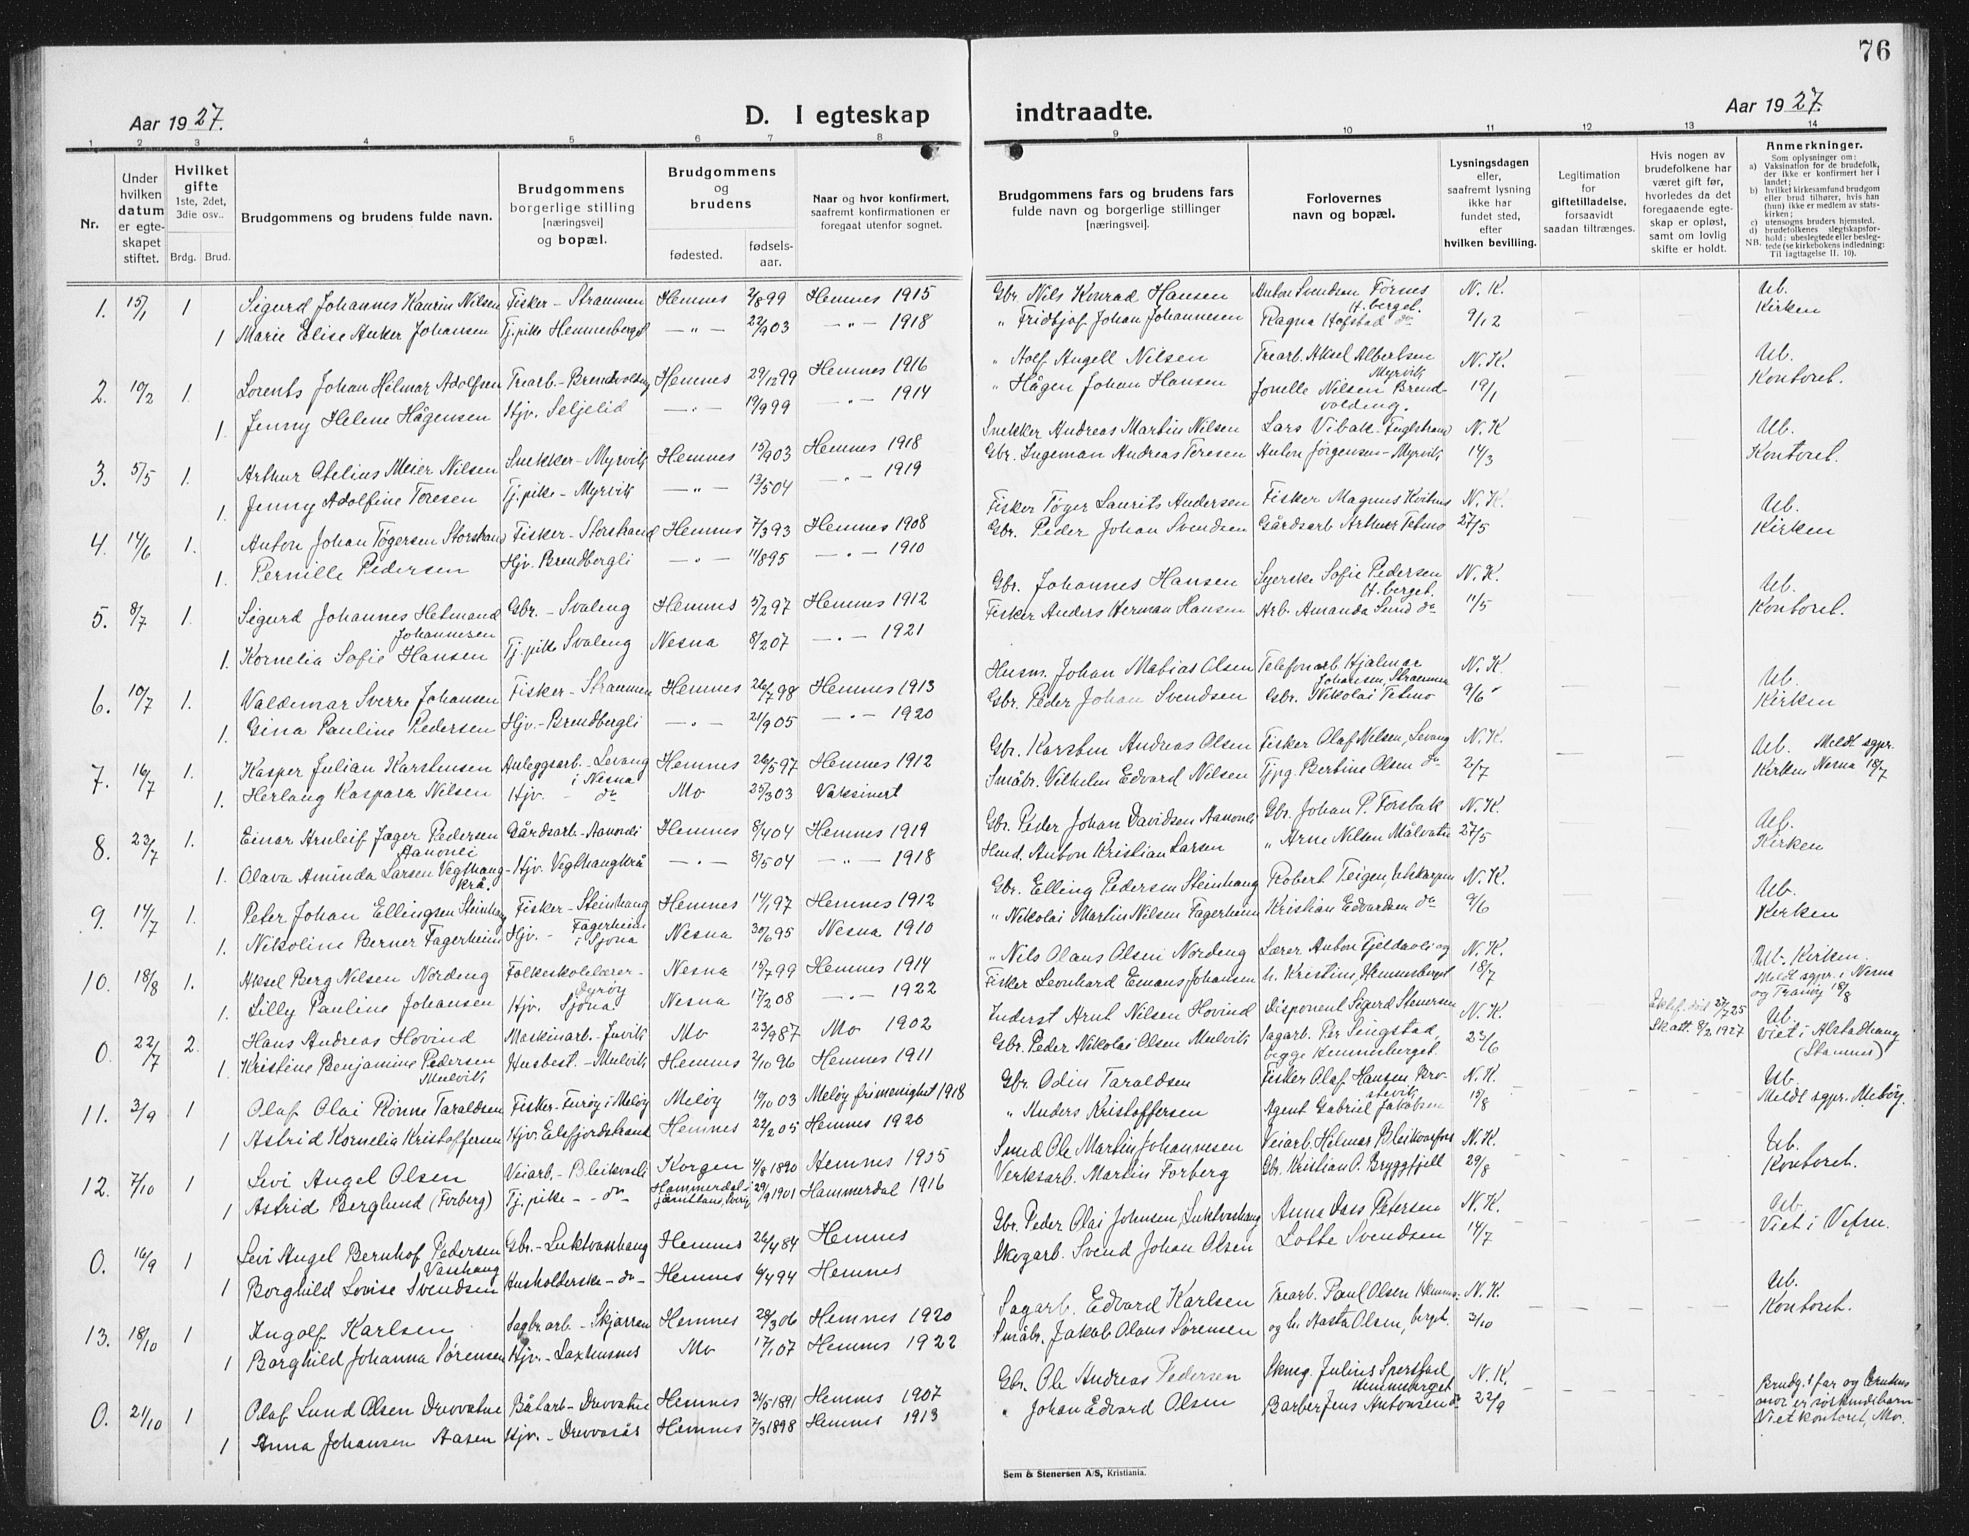 76
Aar 1927.
D. I egteskap
indtraadte.
Aar 1927.
1 2 3 4 5 6 7 8 9 10 11 12 13 14
Nr.
Under hvilken datum er egteskapet stiftet.
Hvilket gifte 1ste, 2det, 3die osv.. Brdg. Brud.
Brudgommens og brudens fulde navn.
Brudgommens borgerlige stilling [næringsvei] og bopæl.
Brudgommens og brudens
fødested.
fødselsaar.
Naar og hvor konfirmert, saafremt konfirmationen er foregaat utenfor sognet.
Brudgommens fars og brudens fars fulde navn og borgerlige stillinger [næringsvei].
Forlovernes navn og bopæl.
Lysningsdagen eller, saafremt lysning ikke har fundet sted, efter hvilken bevilling.
Legitimation for giftetilladelse, forsaavidt saadan tiltrænges.
Hvis nogen av brudefolkene har været gift før, hvorledes da det foregaaende egteskap er opløst, samt om lovlig skifte er holdt.
Anmerkninger.
Som oplysninger om:
a) Vaksination for de brudefolk, der ikke er konfirmert her i landet;
b) hvilket kirkesamfund brudgom eller brud tilhører, hvis han (hun) ikke er medlem av statskirken;
c) utensogns bruders hjemsted,
d) brudefolkenes slegtskapsforhold: ubeslegtede eller beslegtede (se kirkebokens indledning:
NB. Til Iagttagelse II. 10).
1. 15/1 1 Sigurd Johannes Kaurin Nilsen Fisker - Straumen Hemnes 2/8 99 Hemnes 1915 Gbr. Nils Konrad Hansen Anton Svendsen Fornes H.berget. N. K. Ub.
1 Marie Elise Anker Johansen Tj.pike Hemnesberget - " - 22/9 03 - " - 1918 " Fridtjof Johan Johannesen Ragna Hofstad do 9/12 Kirken
2. 10/2 1. Lorents Johan Hilmar Adolfsen Trearb. - Brendvolding Hemnes 29/12 99 Hemnes 1916 " Adolf Angell Nilsen Trearb. Aksel Albertsen Myrvik N. K. Ub.
1. Jenny Helene Hågensen Hjv. Seljelid - " - 19/9 99 - " - 1914 " Hågen Johan Hansen Jonelle Nilsen Brendvolding. 19/1 Kontoret.
3. 5/5 1. Arthur Otelius Meier Nilsen Snekker - Myrvik Hemnes 15/9 03 Hemnes 1918 Snekker Andreas Martin Nilsen Lars Vibak - Fuglstrand N. K Ub.
1. Jenny Adolfine Toresen Tj.pike - Myrvik - " - 13/5 04 - " - 1919 Gbr. Ingeman Andreas Toresen Anton Jørgensen - Myrvik 14/3 Kontoret.
4. 14/6 1. Anton Johan Tøgersen Storstrand Fisker - Storstrand Hemnes 7/3 93 Hemnes 1908 Fisker Tøger Laurits Andersen Fisker Magnus N. K. Ub.
1. Pernille Pedersen Hjv. Brendbergli - " - 11/8 95 - " - 1910 Gbr. Peder Johan Svendsen Gårdsarb Arthur Tetmo 27/5 Kirken
5. 8/7 1. Sigurd Johannes Hetmand Johannesen Gbr. - Svaleng Hemnes 5/2 97 Hemnes 1912 Gbr. Johannes Hansen Syerske Sofie Pedersen H.berget. N. K. Ub.
1. Kornelia Sofie Hansen Tj.pike Svaleng Nesna 8/2 07 - " - 1921 Fisker Anders Herman Hansen Arb. Amanda Sund do 11/5 Kontoret.
6. 10/7 1. Valdemar Sverre Johansen Fisker - Straumen Hemnes 26/7 98 Hemnes 1913 Husm. Johan Matias Olsen Telefonarb Hjalmar Johansen, Straumen N. K Ub.
1. Gina Pauline Pedersen Hjv. - Brendbergli - " - 21/9 05 - " - 1920 Gbr. Peder Johan Svendsen Gbr. Nikolai Tetmo 9/6 Kirken
7. 16/7 1. Kasper Julian Karstensen Anleggsarb. - Levang i Nesna Hemnes 26/5 97 Hemnes 1912 Gbr. Karsten Andreas Olsen Fisker Olaf Nilsen, Levang N. K. Ub. Meldt sgpr.
1. Herlaug Kaspara Nilsen Hjv. - do Mo 25/3 03 Vaksinert Småbr. Vilhelm Edvard Nilsen Tjpg. Bertine Olsen do 2/7 Kirken Nesna 18/7
8. 23/7 1. Einar Arnleif Jager Pedersen Aanonli Gårdsarb - Aanonli Hemnes 8/4 04 Hemnes 1919 Gbr. Peder Johan Davidsen Aanonli Gbr. Johan P. Forsbak N. K. Ub.
1. Olava Aminda Larsen Vegthaugkrå. Hjv. Vegthaugkrå - " - 8/5 04 - " - 1918 Hmd. Anton Kristian Larsen " Arne Nilsen Målvatn 27/5 Kirken
9. 14/7 1. Peter Johan Ellingsen Steinhaug Fisker - Steinhaug Hemnes 14/1 97 Hemnes 1912 Gbr. Elling Pedersen Steinhaug Robert Teigen, Utskarpen N. K. Ub.
1. Nikoline Berner Fagerheim Hjv. - Fagerheim i Sjona Nesna 30/6 95 Nesna 1910 " Nikolai Martin Nilsen Fagerheim Kristian Edvardsen do 9/6 Kirken
10. 18/8 1. Aksel Berg Nilsen Nordeng Folkeskolelærer - Dyrøy Nesna 15/7 99 Hemnes 1914 " Nils Olaus Olsen Nordeng Lærer Anton Fjeldavli og N. K. Ub. Kirken.
1. Lilly Pauline Johansen Hjv. Sjona Nesna 17/2 08 - " - 1922 Fisker Leonhard Emans Johansen h. Kristine, Hemnesberget 18/7 Meldt sgpr. i Nesna og Tranøy 18/8
0. 22/7 2. Hans Andreas Hovind Maskinarb. - Juvik Mo 23/9 87 Mo 1902 Inderst Arnt Nilsen Hovind Disponent Sigurd Stenersen N. K. Ektef. død 27/7 25 Skatt. 8/2 1927 Ub.
1. Kristine Benjamine Pedersen Mulvik Husbest. - Mulvik Hemnes 2/10 96 Hemnes 1911 Gbr. Peder Nikolai Olsen Mulvik Sagarb. Per Sengstad, begge Hemnesberget. 23/6 Viet i Alstadhaug (Stamnes)
11. 3/9 1 Olaf Olai Rønne Taraldsen Fisker - Furøy i Meløy Meløy 19/10 03 Meløy frimenighet 1918 Gbr. Odin Taraldsen Fisker Olaf Hansen N. K. Ub.
1 Astrid Kornelia Kristoffersen Hjv. Elsfjordstrand Hemnes 22/2 05 Hemnes 1920 " Anders Kristoffersen Agent Gabriel Jakobsen 15/8 Meldt sgpr. Meløy.
12. 7/10 1 Levi Angel Olsen Veiarb - Bleikvasli Korgen 4/8 1890 Hemnes 1905 Smed Ole Martin Johannesen Veiarb. Helmar N. K. Ub.
1 Astrid Berglund (Forberg) Tj.pike - - do - Hammerdal - 29/9 1901 Hammerdal 1916 Verksarb. Martin Forberg Gbr. Kristian O. Bryggfjell 29/8 Kontoret.
0. 16/9 1 Levi Angel Bernhof Pedersen Vasshaug Gbr. - Luktvasshaug Hemnes 26/4 84 Hemnes Gbr. Peder Olai Johnsen, Luktvasshaug Anna Dass Petersen N. K. Ub.
1 Borghild Lovise Svendsen Husholderske - do - Hemnes 6/4 94 Hemnes Skogarb. Svend Johan Olsen Lotte Svendsen 14/7 Viet i Vefsn.
13. 18/10 1 Ingolf Karlsen Sagbr.arb - Skjarran Hemnes 28/3 06 Hemnes 1920 Sagarb. Edvard Karlsen Trearb. Paul Olsen N. K. Ub.
1 Borghild Johanna Sørensen Hjv. - Laxhusnes Mo 17/1 07 Hemnes 1922 Småbr. Jakob Olaus Sørensen og h. Aasta Olsen, berget. 3/10 Kontoret.
0. 21/10 1 Olaf Lund Olsen Drevvatne Båtarb - Drevvatne Hemnes 31/5 1891 Hemnes 1907 Gbr. Ole Andreas Pedersen Julius Hemnesberget N. K. Brudg.s far og
1 Anna Johansen Aasen Hjv. - Drevvasås Hemnes 7/3 1898 Hemnes 1913 " Johan Edvard Olsen Barber Jens Antonsen do 22/9 mor er søskendebarn - Viet kontoret, Mo.
Sem & Stenersen A/S, Kristiania.